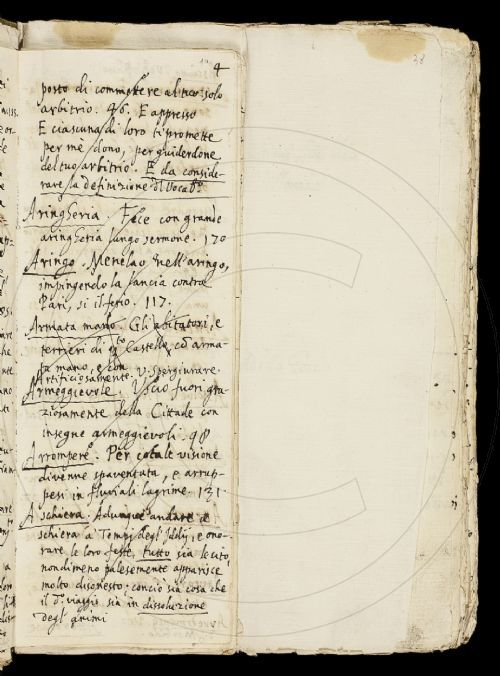 4
38
posto di commettere al tuo solo
arbitrio. 46. E appresso
E ciascuna di loro ti promette
per mè dono, per guiderdone
del tuo arbitrio. E da conside-
rare la definizione dl Vocabo
Aringheria. Fece con grande
aringheria lungo sermone. 170
Aringo. Menelao nell'aringo,
impingendo la lancia contra
Pari, si il ferio. 117.
Armata mano. Gli abitatori, e
terrieri di qto Castello, co arma-
ta mano, e con
Artificiosamente. v. spergiurare.
Armeggievole. Uscio fuori gra-
ziosamente della Cittade con
insegne armeggievoli. 98
Arrompere. Per cotale visione
divenne spaventata, e arrup-
pesi in fluviali lagrime. 131.
A schiera. Adunque andare a
schiera a Tempj degl' Iddij, e ono-
rare le loro feste, tutto sia lecito,
nondimeno palesemente apparisce
molto disonesto; conciò sia cosa che
il do viaggio sia in dissoluzione
degl' animi